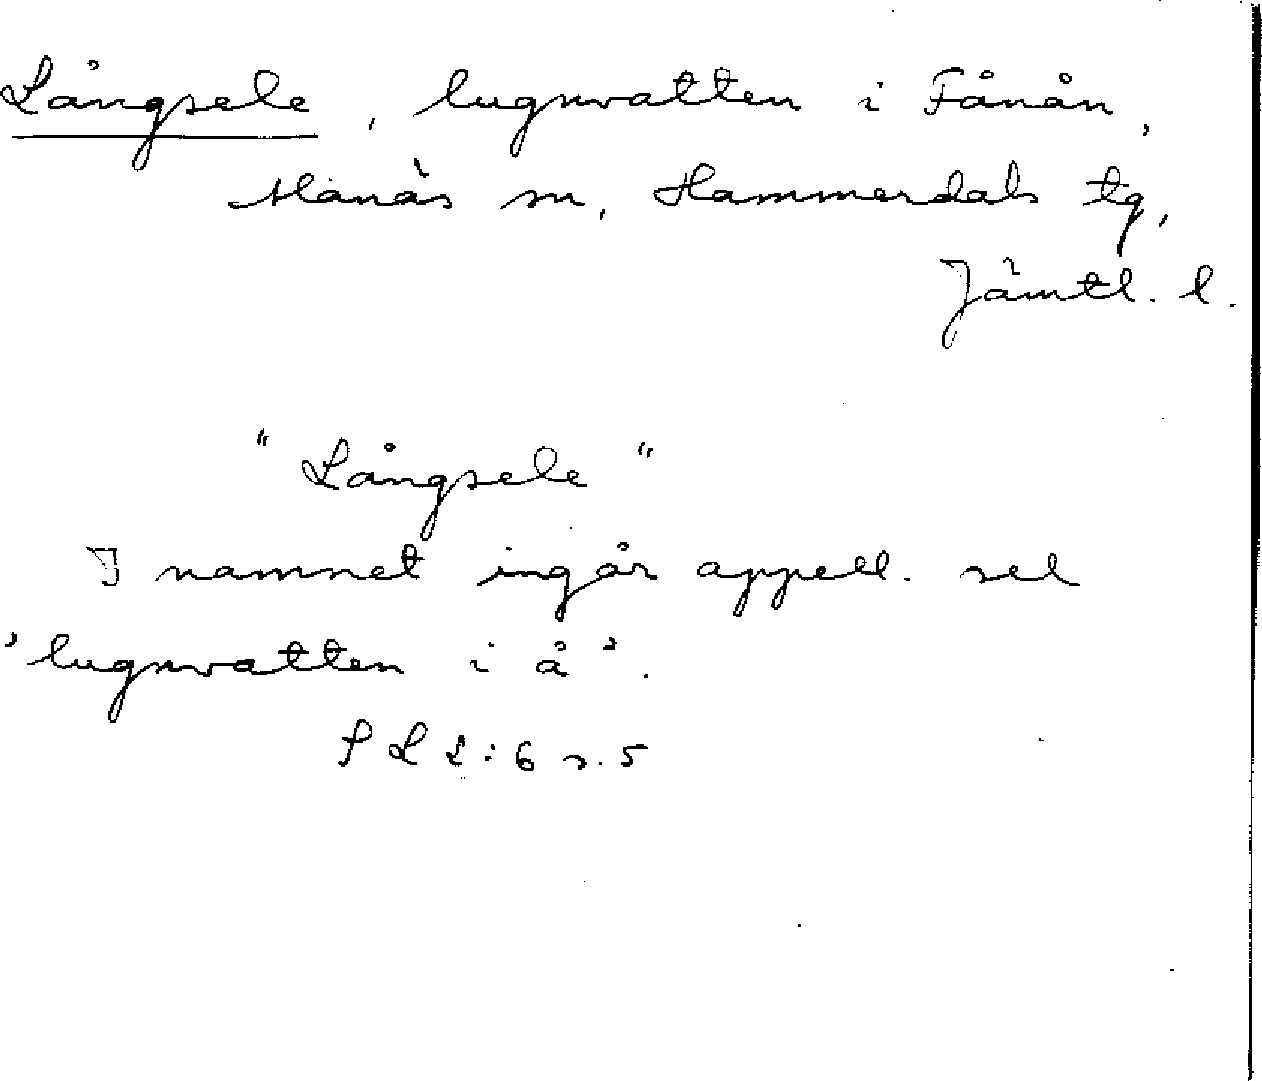 Långsele, lugnvatten i Fånån,
Alanäs sn, Hammerdals tg,
Jämtl. l.
"Långsele"
I namnet ingår appell. sel
'lugnvatten i å'.
SL 2:6 s. 5